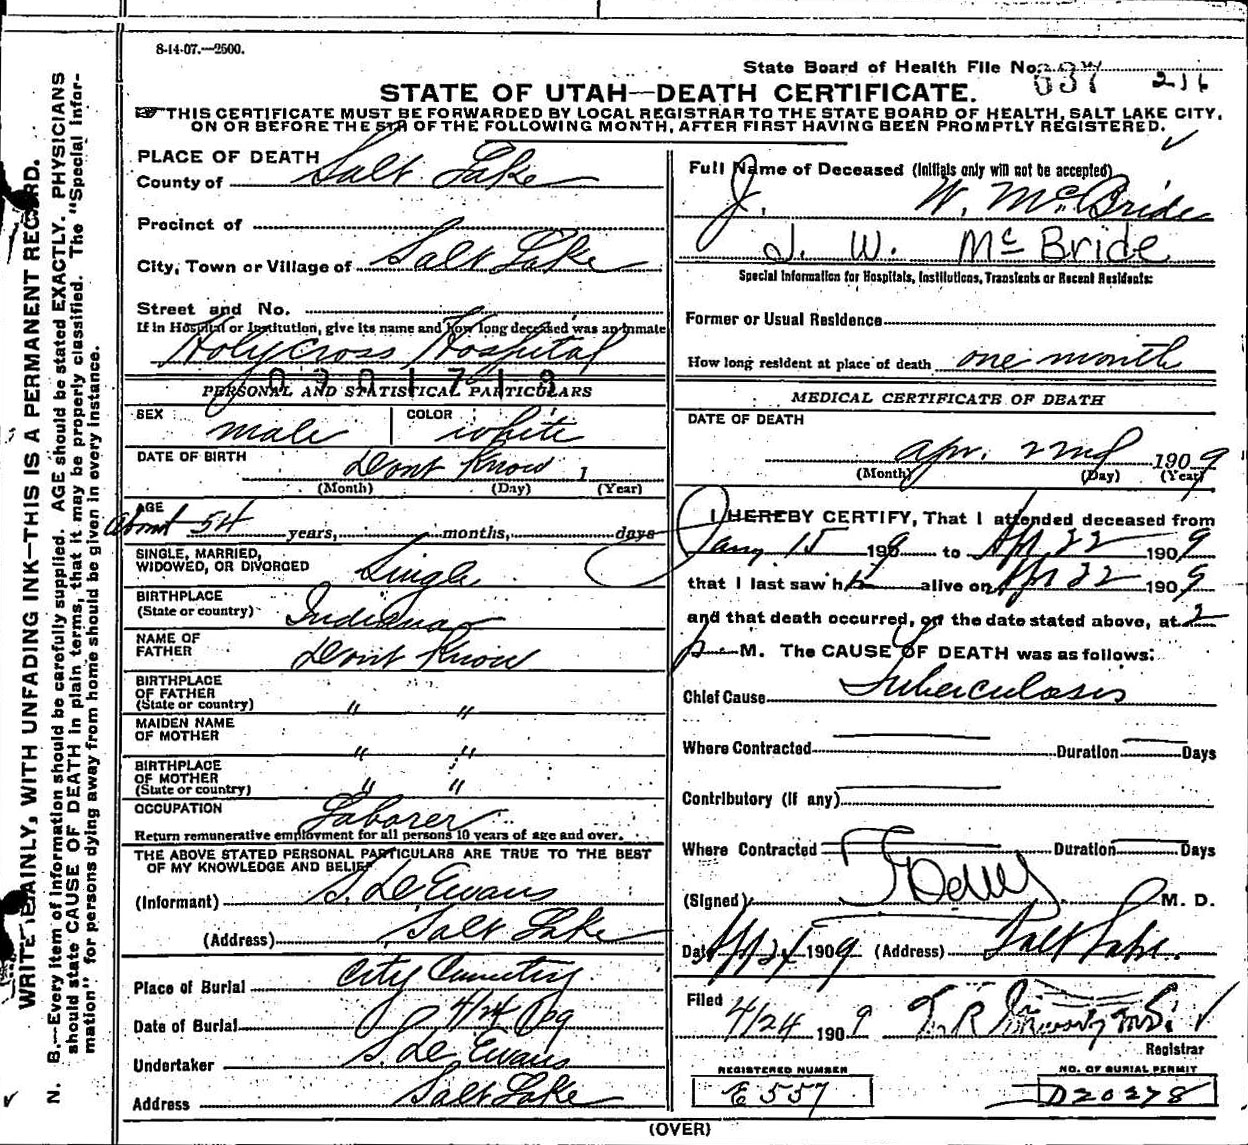 8-14-07.—2500.
State Board of Health File No. 637 216
STATE OF UTAH—DEATH CERTIFICATE.
THIS CERTIFICATE MUST BE FORWARDED BY LOCAL REGISTRAR TO THE STATE BOARD OF HEALTH, SALT LAKE CITY,
ON OR BEFORE THE 5TH OF THE FOLLOWING MONTH, AFTER FIRST HAVING BEEN PROMPTLY REGISTERED.
WRITE PLAINLY, WITH UNFADING INK—THIS IS A PERMANENT RECORD.
N. B.—Every item of information should be carefully supplied. AGE should be stated EXACTLY. PHYSICIANS
should state CAUSE OF DEATH in plain terms, that it may be properly classified. The "Special Infor-
mation" for persons dying away from home should be given in every instance.
PLACE OF DEATH
County of Salt Lake
Precinct of
City, Town or Village of Salt Lake
Street and No.
If in Hospital or Institution, give its name and how long deceased was an inmate
Holy Cross Hospital
0301713
PERSONAL AND STATISTICAL PARTICULARS
SEX male COLOR white
DATE OF BIRTH Dont Know 1
(Month) (Day) (Year)
AGE
about 54 years, months, days
SINGLE, MARRIED,
WIDOWED, OR DIVORCED Single
BIRTHPLACE
(State or country) Indiana
NAME OF
FATHER Dont Know
BIRTHPLACE
OF FATHER
(State or country) " "
MAIDEN NAME
OF MOTHER " "
BIRTHPLACE
OF MOTHER
(State or country) " "
OCCUPATION Laborer
Return remunerative employment for all persons 10 years of age and over.
THE ABOVE STATED PERSONAL PARTICULARS ARE TRUE TO THE BEST
OF MY KNOWLEDGE AND BELIEF
(Informant) S. D. Evans
(Address) Salt Lake
Place of Burial City Cemetery
Date of Burial 4/24 09
Undertaker S. D. Evans
Address Salt Lake
Full Name of Deceased (Initials only will not be accepted)
J. W. McBride
J. W. McBride
Special Information for Hospitals, Institutions, Transients or Recent Residents:
Former or Usual Residence
How long resident at place of death one month
MEDICAL CERTIFICATE OF DEATH
DATE OF DEATH
Apr. 22nd 1909
(Month) (Day) (Year)
I HEREBY CERTIFY, That I attended deceased from
Jany 15 1909 to Apr 22 1909
that I last saw h alive on Apr 22 1909
and that death occurred, on the date stated above, at 2
p M. The CAUSE OF DEATH was as follows:
Chief Cause Tuberculosis
Where Contracted Duration Days
Contributory (if any)
Where Contracted Duration Days
(Signed) M. D.
Date 1909 (Address) Salt Lake.
Filed 4/24 1909
Registrar
REGISTERED NUMBER
E557
NO. OF BURIAL PERMIT
D20278
(OVER)